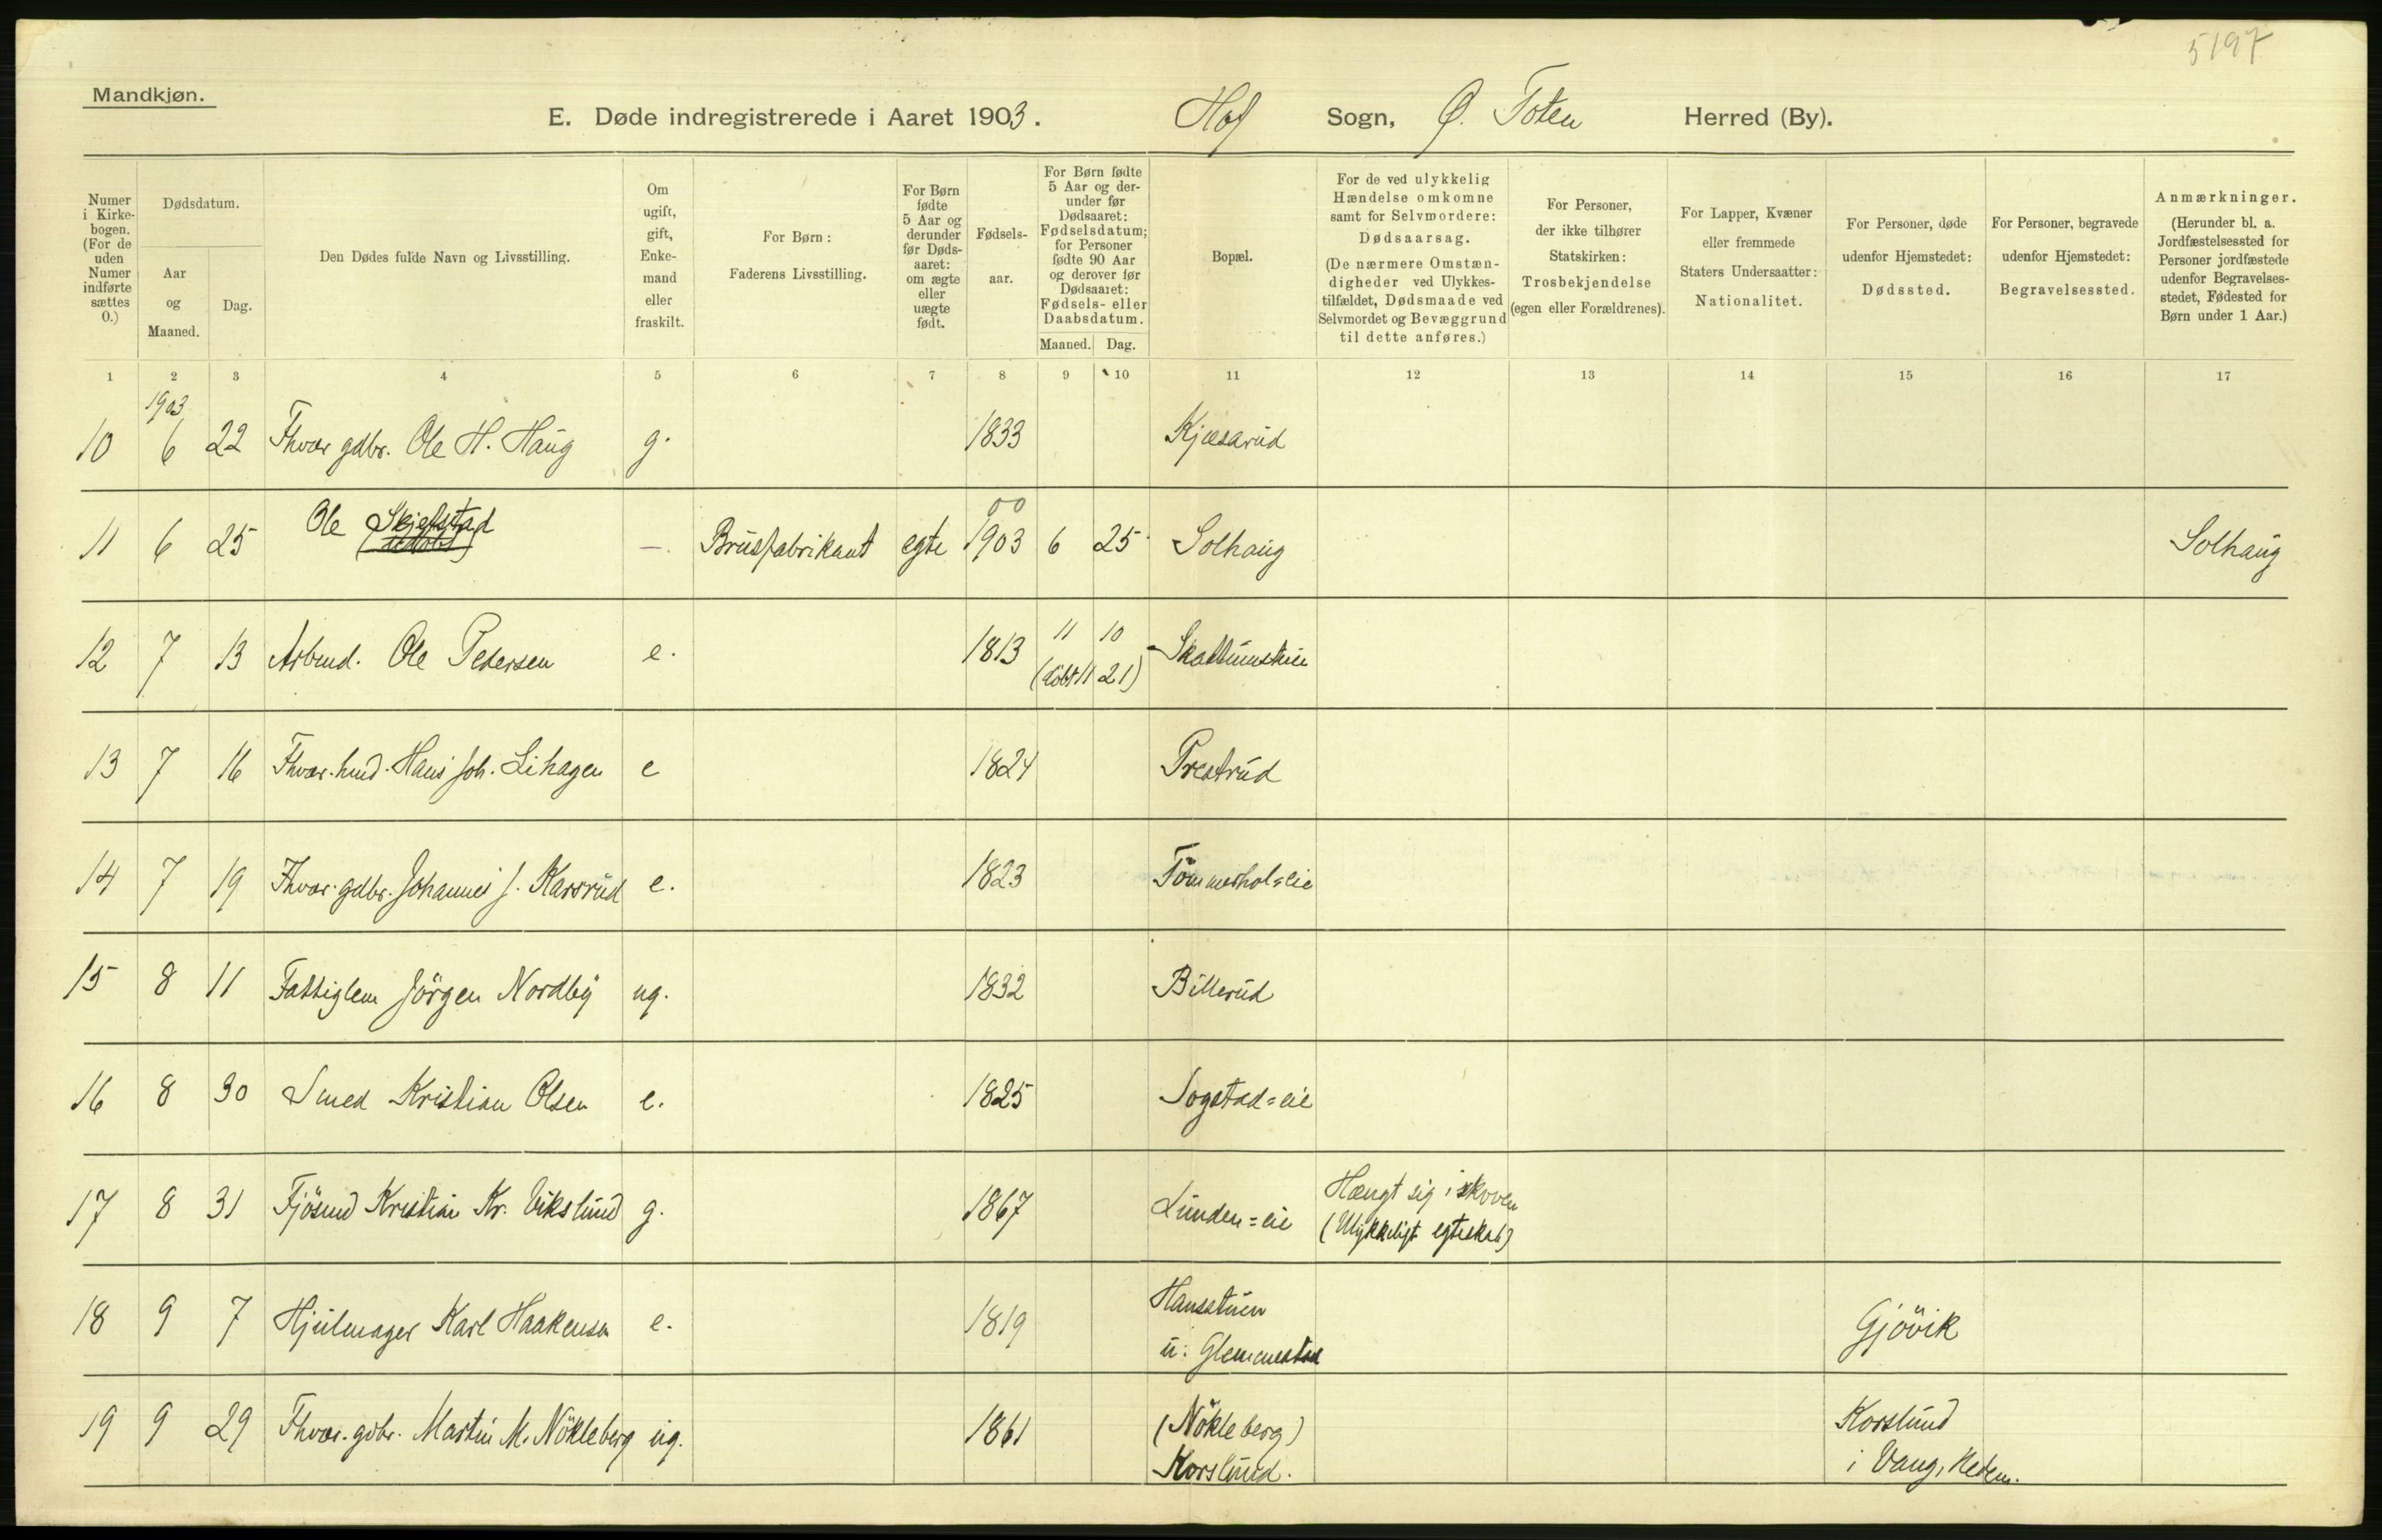 5197
Mandkjøn.
E. Døde indregistrerede i Aaret 1903. Hof Sogn, Ø. Toten Herred (By).
Numer i Kirkebogen. (For de uden Numer indførte sættes O.)
Dødsdatum.
Aar og Maaned.
Dag.
Den Dødes fulde Navn og Livsstilling.
Om ugift, gift, Enkemand eller fraskilt.
For Børn: Faderens Livsstilling.
For Børn fødte 5 Aar og derunder før Dødsaaret: om ægte eller uægte født.
Fødselsaar.
For Børn fødte 5 Aar og derunder før Dødsaaret: Fødselsdatum; for Personer fødte 90 Aar og derover før Dødsaaret: Fødsels- eller Daabsdatum.
Maaned. Dag.
Bopæl.
For de ved ulykkelig Hændelse omkomne samt for Selvmordere: Dødsaarsag. (De nærmere Omstændigheder ved Ulykkestilfældet, Dødsmaade ved Selvmordet og Bevæggrund til dette anføres.)
For Personer, der ikke tilhører Statskirken: Trosbekjendelse (egen eller Forældrenes).
For Lapper, Kvæner eller fremmede Staters Undersaatter: Nationalitet.
For Personer, døde udenfor Hjemstedet: Dødssted.
For Personer, begravede udenfor Hjemstedet: Begravelsessted.
Anmærkninger. (Herunder bl. a. Jordfæstelsessted for Personer jordfæstede udenfor Begravelsesstedet, Fødested for Børn under 1 Aar.)
1 2 3 4 5 6 7 8 9 10 11 12 13 14 15 16 17
1903
10 6 22 Fhvær gdbr. Ole H. Haug g. 1833 Kjæsarud
00
11 6 25 Ole Skjelstad —. Brusfabrikant egte 1903 6 25 Solhaug Solhaug
12 7 13 Arbmd. Ole Pedersen e. 1813 11 10
(döbt 11 21)
13 7 16 Fhvær. hmd. Hans Joh. Lihagen e 1824 Prestrud
14 7 19 Fhvær. gdbr. Johannes J. Karsrud e. 1823 Tömmerhol=eie
15 8 11 Fattiglem Jörgen Nordby ug. 1832 Billerud
16 8 30 Smed Kristian Olsen e. 1825 Sogstad=eie
17 8 31 Fjösmd Kristian Kr. Vikslund g. 1867 Lunden=eie Hængt sig i skoven
(Ulykkeligt egteskab)
18 9 7 Hjulmager Karl Haakensen e. 1819 Hansstuen
u. Glemmestad Gjövik
19 9 29 Fhvær. gdbr. Martin M. Nökleberg ug. 1861 (Nökleberg)
Korslund. Korslund
i Vang, Hedem.